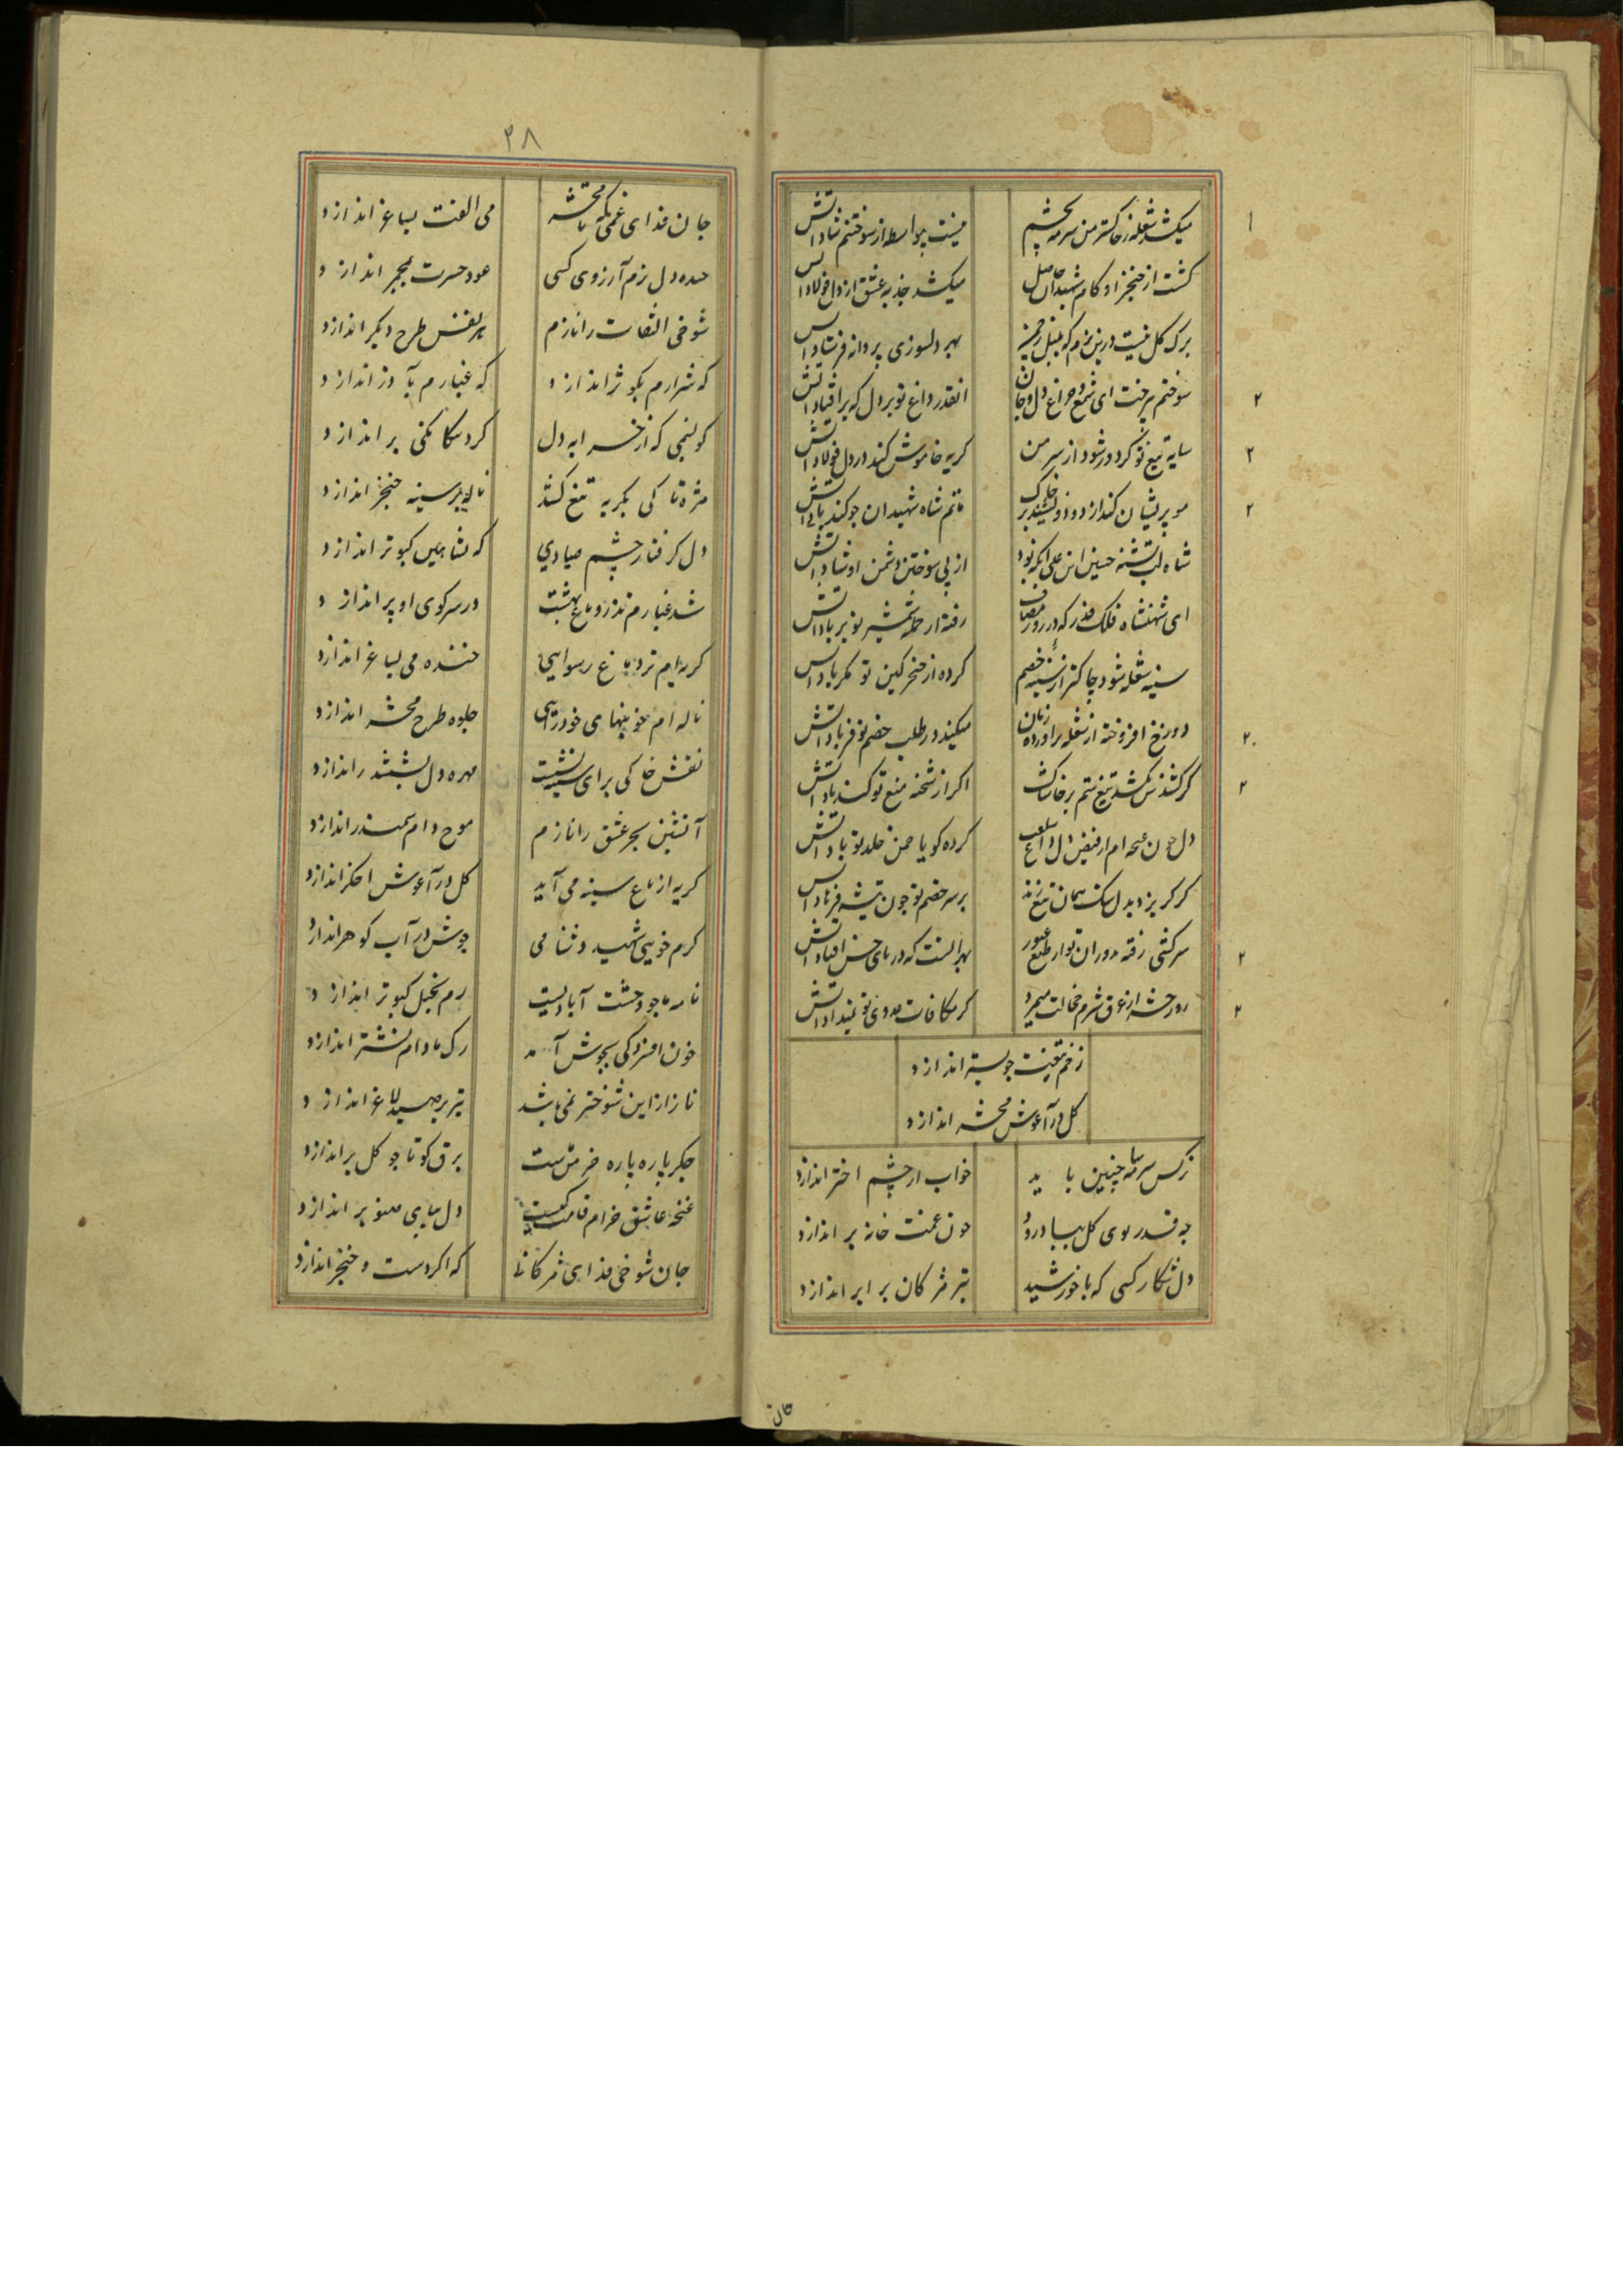 میکشد شعله ز خاکستر من سرمه بچشم
نیست بیواسطه از سوختنم شاد آتش
کشت از خنجر او کام شهیدان حاصل
میکشد جذبه عشق از دل فولاد آتش
برک کل نیست درین بزم که بلبل
بهر دلسوزی پروانه فرستاد آتش
سوختم سوخت ای شمع و چراغ دل و جان
انقدر داغ تو بر دل که بر افتاد آتش
سایه تیغ تو کر دور شود از سر من
کریه خاموش کند در دل فولاد آتش
مو پریشان کند از دود
ماتم شاه شهیدان چو کند یاد آتش
شاه لب تشنه حسین ابن علی انکه بود
از پی سوختن دشمن او شاد آتش
ای شهنشاه فلک قدر که در روز مصاف
رفته از حمله شمشیر تو بر باد آتش
سینه شعله شود چاکتر از سینه خصم
کرده از خنجر کین تو مکر یاد آتش
دوزخ افروخته از شعله بر اورده زبان
میکند در طلب خصم تو فریاد آتش
کر کشد تیغ ستم بر خاشاک
اکر از شحنه منع تو کند یاد آتش
دل چون غنچه ام از فیض دل
کرده کویا چمن خلد تو باد آتش
کر کریزد بدل سنک همان تیغ زند
بر سر خصم تو چون تیشه فرهاد آتش
سرکشی رفته بدوران تو از طبع غیور
بهر آنست که در پای خس افتاد آتش
روز حشر از عرق شرم خجالت میمرد
کر مکافات عدوی تو نمیداد آتش
زخم تیغت چو بستر اندازد
کل در آغوش محشر اندازد
نرکس سرمه سا چنین باید
خواب از چشم اختر اندازد
چه قدر بوی کل بباد رود
چون غمت خانه بر اندازد
دل شکار کسی که با خورشید
تیر مژکان برابر اندازد
کان
۲۸
جان فدای غمی که تا محشر
می الفت بساغر اندازد
دل بزم آرزوی کسی
عود حسرت بمجمر اندازد
شوخی التفات را نازم
هر نفس طرح دیکر اندازد
که شرارم بکوثر اندازد
که غبارم بآذر اندازد
کو نسیمی که از خرابه دل
کرد بر اندازد
مژه تا کی بکریه تیغ کشد
ناله بر سینه خنجر اندازد
دل کرفتار چشم صیادی
که بشاهین کبوتر اندازد
شد غبارم تذرو باغ بهشت
در سر کوی او پر اندازد
کریه ام تر دماغ رسوایی
خنده می بساغر اندازد
ناله ام خونبهای خودرایی
جلوه طرح محشر اندازد
نقش خاکی برای
مهره دل بششدر اندازد
آتشین بحر عشق را نازم
موج دام سمندر اندازد
کریه از باغ سینه می آید
کل در آغوش اخکر اندازد
کرم خویی شهید دشنامی
جوش در آب کوهر اندازد
نامه ما چو وحشت آبادیست
رم بخیل کبوتر اندازد
خون افسردکی بجوش آمد
رک ما دام نشتر اندازد
ناز از این شوختر نمی باشد
تیر بر صید لاغر اندازد
جکر پاره پاره خرمن ماست
برق کو تا چو کل بر اندازد
غنچه عاشق خرام قامت کیست
دل بپای صنوبر اندازد
جان شوخی فدای مژکانی
که اکر دست و خنجر اندازد